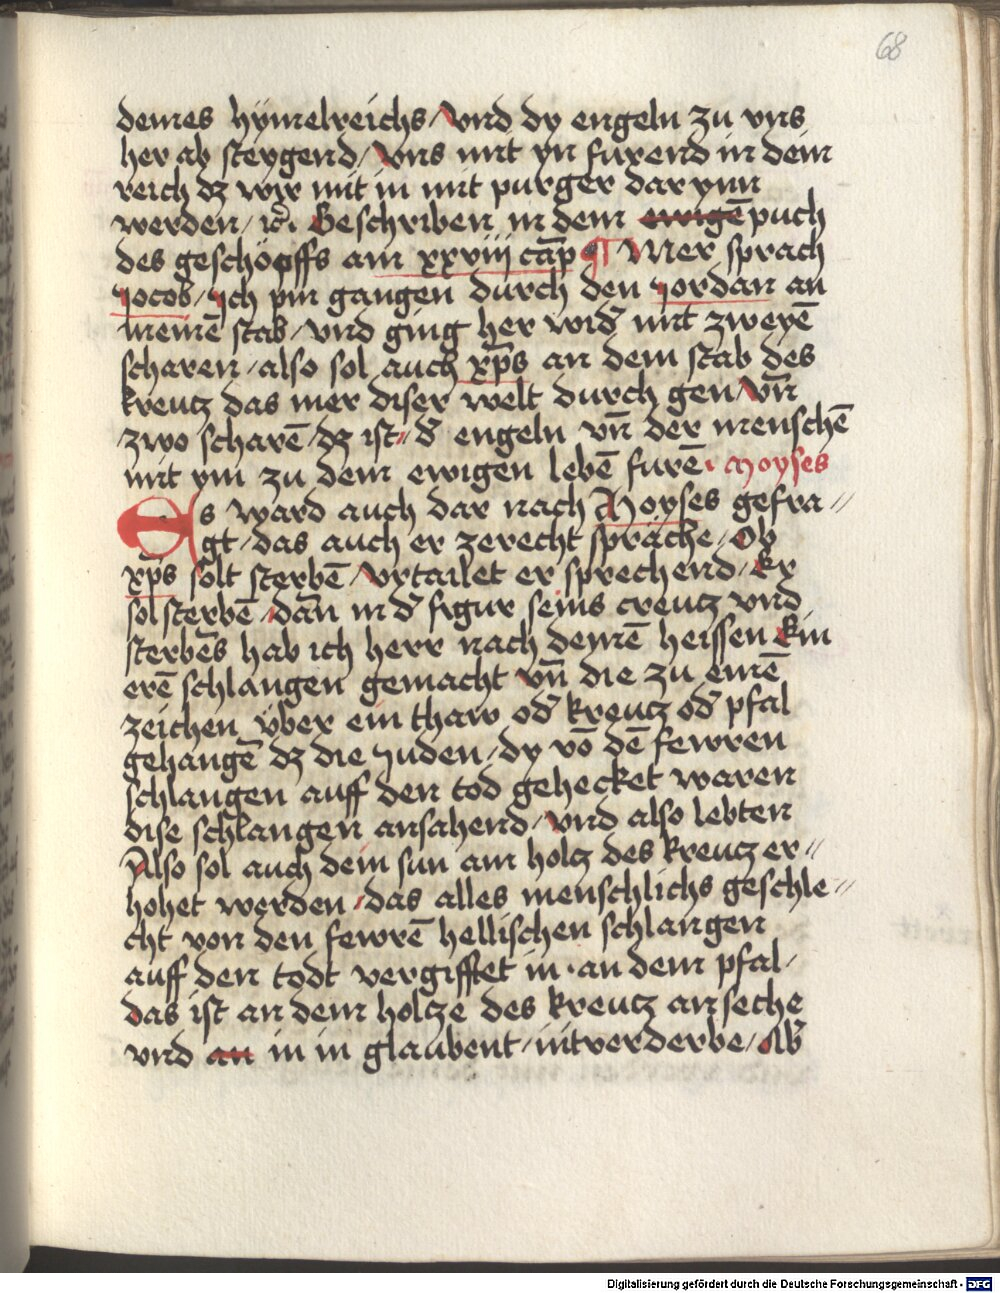 68
demes hÿmelreichs / vnd dy engeln zu vns
her ab steygend / vns mit yn furend in dein
reich dz wir mit in mit purger dar ynn
werden / rc̃. Beschriben in dem ewigē puch
des geschöpffs am xxviij cap̄ ¶ Mer sprach
Jocob / ich pin gangen durch den Jordan an
meinē stab / vnd ging her wid̄ mit zweyē
scharen / also sol auch xp̄s an dem stab des
kreutz das mer diser welt durch gen / vn̄
zwo scharē / dz ist / d̄ engeln vn̄ der menschē
mit ym zu dem ewigen lebē furē. Moyses
Es ward auch dar nach Moyses gefra //
gt / das auch er zerecht spräche / Ob
xp̄s solt sterbē / vrtailet er sprechend / Er
sol sterbē / dan̄ in d̄ figur seins creutz vnd
sterbēs hab ich herr nach deynē heissen ein
erē schlangen gemacht vn̄ die zu einē
zeichen vber ein thaw od̄ kreutz od̄ pfal
gehangē dz die Juden / dy vō dē fewren
schlangen auff den tod gehecket waren
dise schlangen ansahend / vnd also lebten
Also sol auch dein sun am holtz des kreutz er //
hohet werden / das alles menschlichs geschle //
cht von den fewrē hellischen schlangen
auff den todt vergifftet in . an dem pfal /
das ist an dem holtze des kreutz anseche
vnd an in in glaubent / nitverderbe / Ab
Digitalisierung gefördert durch die Deutsche Forschungsgemeinschaft - DFG